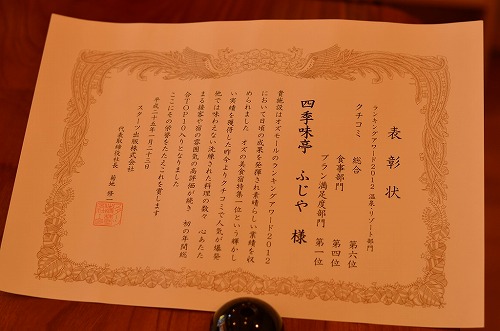 表彰状
ランキングアワード2012 温泉・リゾート部門
クチコミ 総合 第六位
食事部門 第四位
プラン満足度部門 第一位
四季味亭 ふじや 様
貴施設はオズモールのランキングアワード2012
において日頃の成果を発揮され素晴らしい業績を収
められました オズの美食宿特集一位という輝かし
い実績を獲得した昨今よりクチコミで人気が爆発
他では味わえない洗練された料理の数々 心あたた
まる接客や宿の雰囲気の高評価が続き 初の年間総
合TOP10入りとなりました
ここにその栄誉をたたえこれを賞します
平成二十五年一月二十三日
スターツ出版株式会社
代表取締役社長 菊地 修一